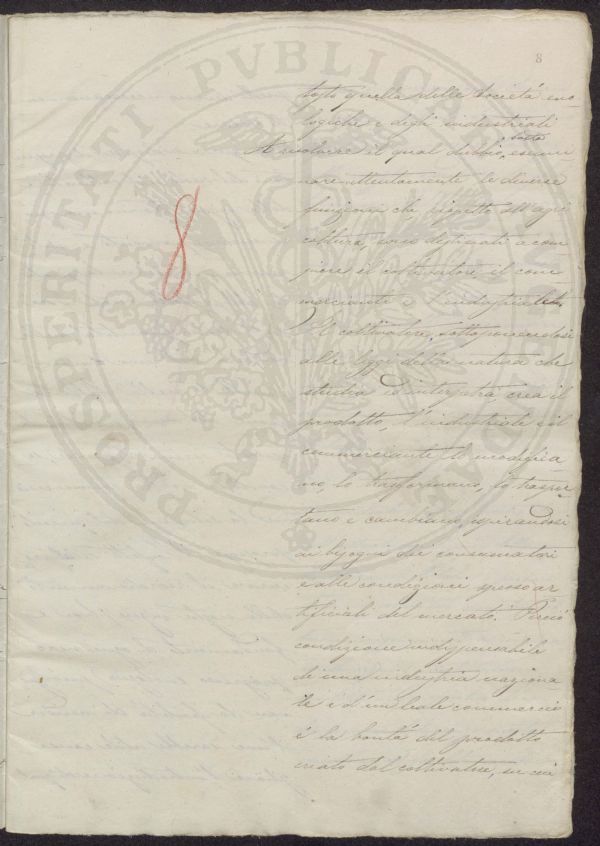 8
tosto quella delle società eno
logiche e degli industriali
A risolvere il qual dubbio, basta esami
nare attentamente le diverse
funzioni che rispetto all'agri
coltura sono destinati a com
piere il coltivatore il com
merciante e l'industriale.
Il coltivatore, sottoponendosi
alle leggi della natura che
studia ed interpreta crea il
prodotto, l'industriale e il
commerciante lo modifica
no, lo trasformano, lo traspor
tano e cambiano ispirandosi
ai bisogni dei consumatori
e alle condizioni spesso ar
tificiali del mercato. Perciò
condizione indispensabile
di una industria naziona
le e d'un leale commercio
è la bontà del prodotto
creato dal coltivatore, su cui
8
PROSPERITATI PVBLICAE